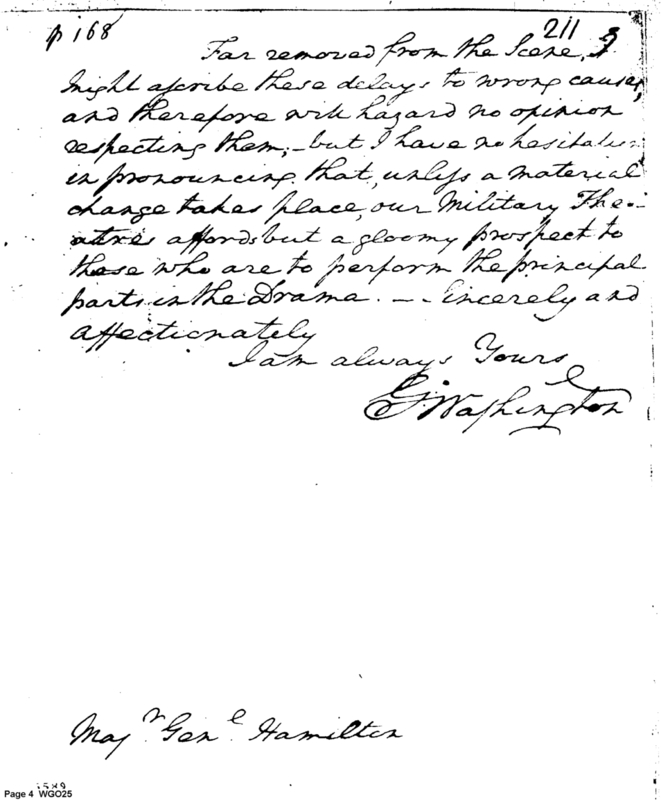 p 168
211
Far removed from the Scene, I
might ascribe these delays to wrong causes,
and therefore will hazard no opinion
respecting them; – but I have no hesitation
in pronouncing that, unless a material
change takes place, our Military The-
atre affords but a gloomy prospect to
those who are to perform the principal
parts in the Drama. – Sincerely and
affectionately
I am always Yours
G: Washington
Maj.r Gen.l Hamilton
Page 4 WGO25